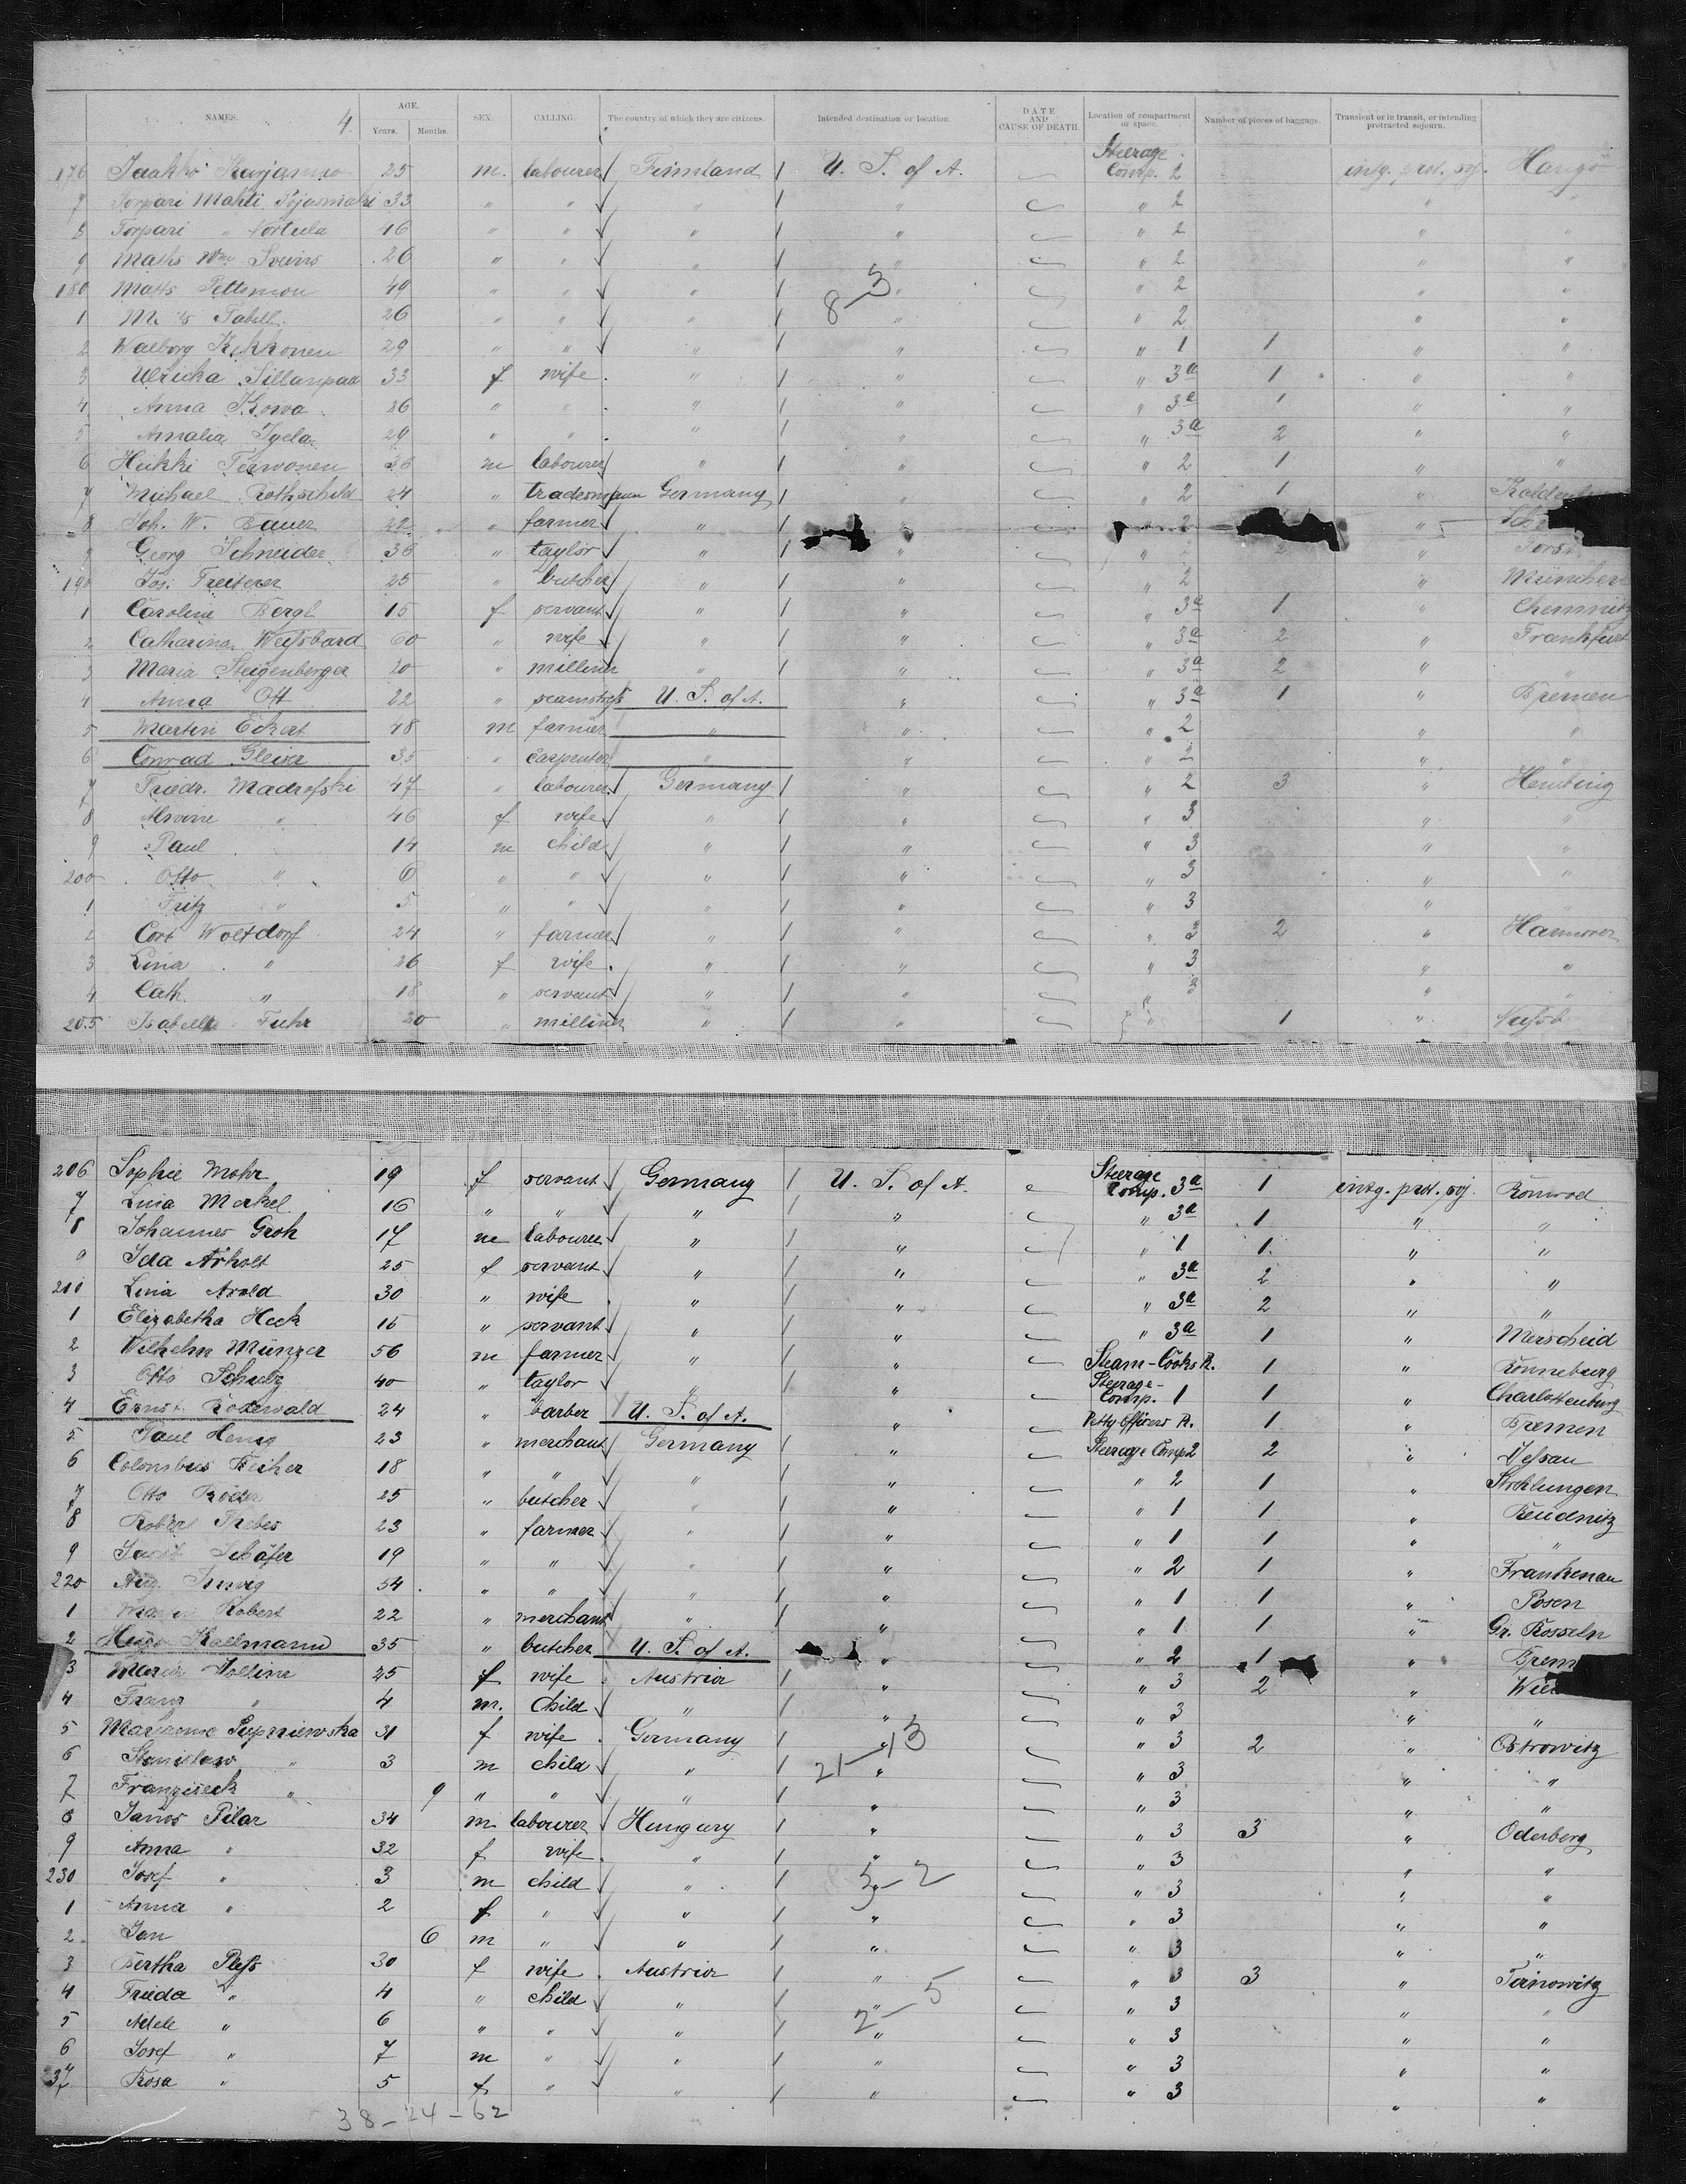 NAMES. 4. AGE. Years. Months. SEX. CALLING. The country of which they are citizens. Intended destination or location. DATE AND CAUSE OF DEATH Location of compartment or space. Number of pieces of baggage. Transient or in transit, or intending protracted sojourn.
176 Jaakko 25 m. labourer Finnland U. S. of A. Steerage Comp. 2 intg. prot. soj. Hangö
7 Torpari Mahti 33 " " " " " 2 " "
8 Torpari " 46 " " " " " 2 " "
9 Maths 26 " " " " " 2 " "
180 Matts 49 " " " " " 2 " "
8-3
1 26 " " " " " 2 " "
2 Walborg Kekkonen 29 " " " " " 1 1 " "
3 Ulricka Sillanpaa 33 f wife " " " 3a 1 " "
4 Anna Koiva 26 " " " " " 3a 1 " "
5 Amalia 29 " " " " " 3a 2 " "
6 Heikki Terwonen 36 m labourer " " " 2 1 " "
7 Michael Rothschild 24 " tradesman Germany " " 2 1 "
8 Joh. W. Bauer 22 " farmer " " " 2 "
9 Georg Schneider 36 " taylor " " " 2 2 "
190 Jos. Treiterer 25 " butcher " " " 2 " München
1 Caroline Bergt 15 f servant " " " 3a 1 " Chemnitz
2 Catharina Weissbard 60 " wife " " " 3a 2 " Frankfurt
3 Maria Steigenberger 20 " milliner " " " 3a 2 " "
4 Anna Ott 22 " seamstress U. S. of A. " " 3a 1 " Bremen
5 Martin Eckert 48 m farmer " " " 2 " "
6 Conrad 35 " carpenter " " " 2 " "
7 Friedr. Madrofski 47 " labourer Germany " " 2 3 "
8 Alwine " 46 f wife " " " 3 " "
9 Paul 14 m child " " " 3 " "
200 Otto " 6 " " " " " 3 " "
1 Fritz " 5 " " " " " 3 " "
2 Cort Woltdorf 24 " farmer " " " 3 2 " Hannover
3 Lina " 26 f wife " " " 3 " "
4 Cath. " 18 " servant " " " 3 " "
205 Isabella Fuhr 20 " milliner " " " 1 "
206 Sophie Mohr 19 f servant Germany U. S. of A. Steerage Comp. 3a 1 intg. prot. soj. Romrod
7 Lina Merkel 16 " " " " " 3a 1 " "
8 Johannes Groh 17 m labourer " " " 1 1 " "
9 Ida Arholt 25 f servant " " " 3a 2 " "
210 Lina Arold 30 " wife " " " 3a 2 " "
1 Elizabetha Heck 16 " servant " " " 3a 1 " Merscheid
2 Wilhelm Münzer 56 m farmer " " Steam-Cooks R. 1 " Ronneburg
3 Otto Schulz 40 " taylor " " Steerage-Comp. 1 1 " Charlottenburg
4 Ernst Rosewald 24 " barber U. S. of A. " Petty Officers R. 1 " Bremen
5 Paul 23 " merchant Germany " Steerage Comp 2 2 " Dessau
6 Colombus 18 " " " " " 2 1 "
7 Otto Röder 25 " butcher " " " 1 1 " Reudnitz
8 Robert Trebes 23 " farmer " " " 1 1 " "
9 Schäfer 19 " " " " " 2 1 " Frankenau
220 Aug. 54 " " " " " 1 1 " Posen
1 Robert 22 " merchant " " " 1 1 " Gr. Rosseln
2 Hugo Kallmann 35 " butcher U. S. of A. " " 2 1 "
3 Maria 25 f wife Austria " " 3 2 "
4 Franz " 4 m. child " " " 3 " "
5 Marianne 31 f wife Germany " " 3 2 " Ostrowitz
21-13
6 Stanislaw " 3 m child " " " 3 " "
7 Franziseck " 9 " " " " " 3 " "
8 Janos Pilar 34 m labourer Hungary " " 3 3 " Oderberg
9 Anna " 32 f wife " " " 3 " "
230 Josef " 3 m child " " " 3 " "
3-2
1 Anna " 2 f " " " " 3 " "
2 Jan 6 m " " " " 3 " "
3 Bertha Pless 30 f wife Austria " " 3 3 " Tarnowitz
4 Frieda " 4 " child " " " 3 " "
2-5
5 Adele " 6 " " " " " 3 " "
6 Josef " 7 m " " " " 3 " "
237 Rosa " 5 f " " " " 3 " "
38-24-62